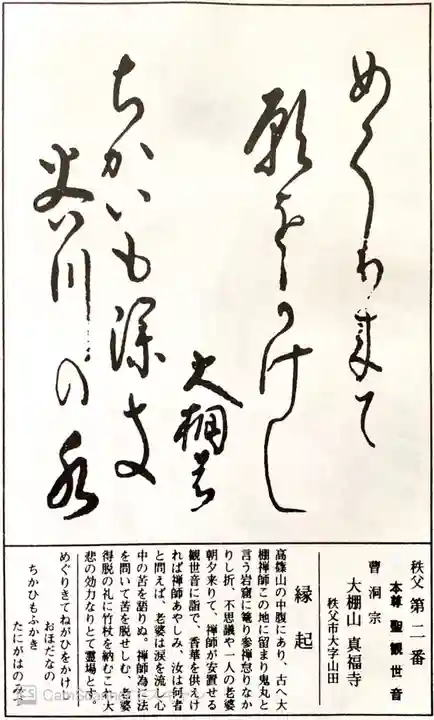 めくり来て
願をかけし
大棚の
ちかいも深き
谷川の水
秩父 第二番
本尊 聖観世音
曹洞宗
大棚山 真福寺
秩父市大字山田
縁起
高篠山の中腹にあり、古へ大
棚禅師この地に留まり鬼丸と
言う岩窟に篭り参禅怠りなか
りし折、不思議や一人の老婆
朝夕来りて、禅師が安置せる
観世音に詣で、香華を供えけ
れば禅師あやしみ、汝は何者
と問えば、老婆は涙を流し心
中の苦を語りぬ。禅師為に法
を問いて苦を脱せしむ、老婆
得脱の礼に竹杖を納むこれ大
悲の効力なりとて霊場とす。
めぐりきてねがひをかけし
おほだなの
ちかひもふかき
たにがはのみづ
CS CamScanner